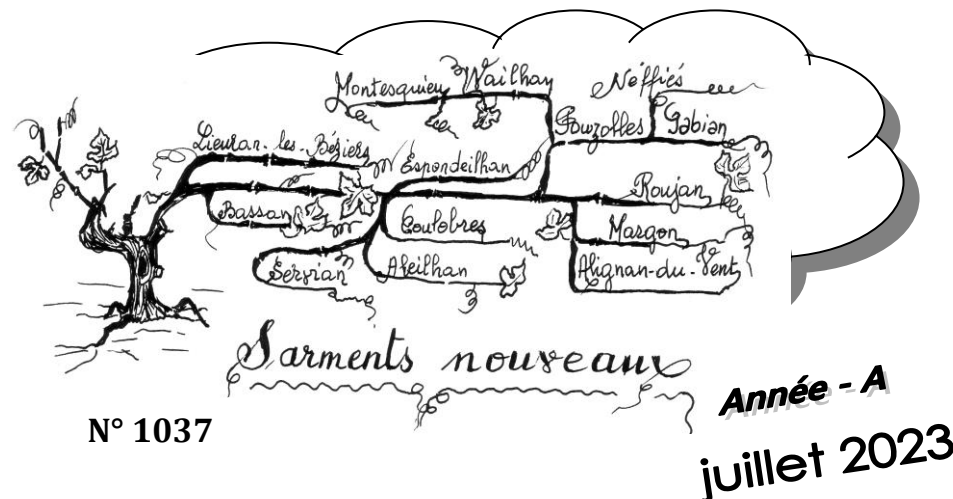 Montesquieu Vailhan Néffiés
Pouzolles Gabian
Lieuran-les-Béziers Espondeilhan
Roujan
Bassan Coulobres Margon
Servian Abeilhan Alignan-du-Vent
Sarments nouveaux
Année - A
N° 1037
juillet 2023